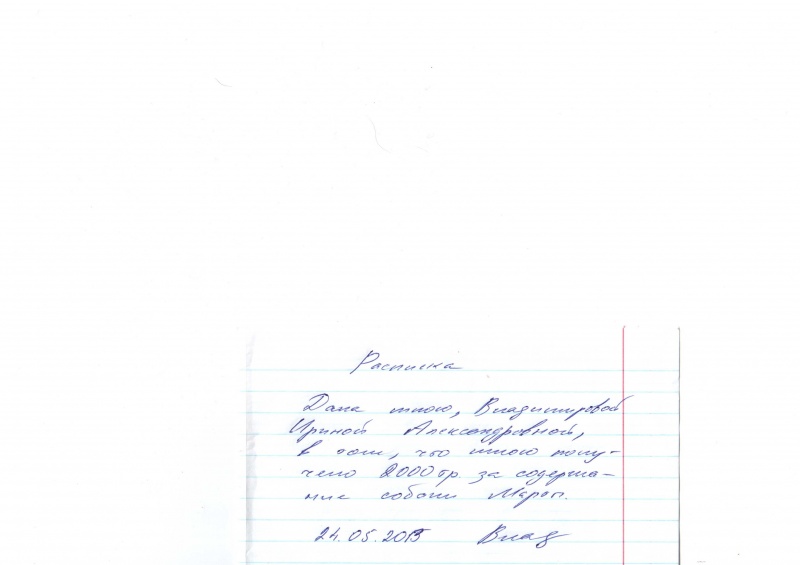 Расписка
Дана мною, Владимировой
Ириной Александровной,
в том, что мною полу-
чено 2000 р. за содержа-
ние собаки
24.05.2013 Влад